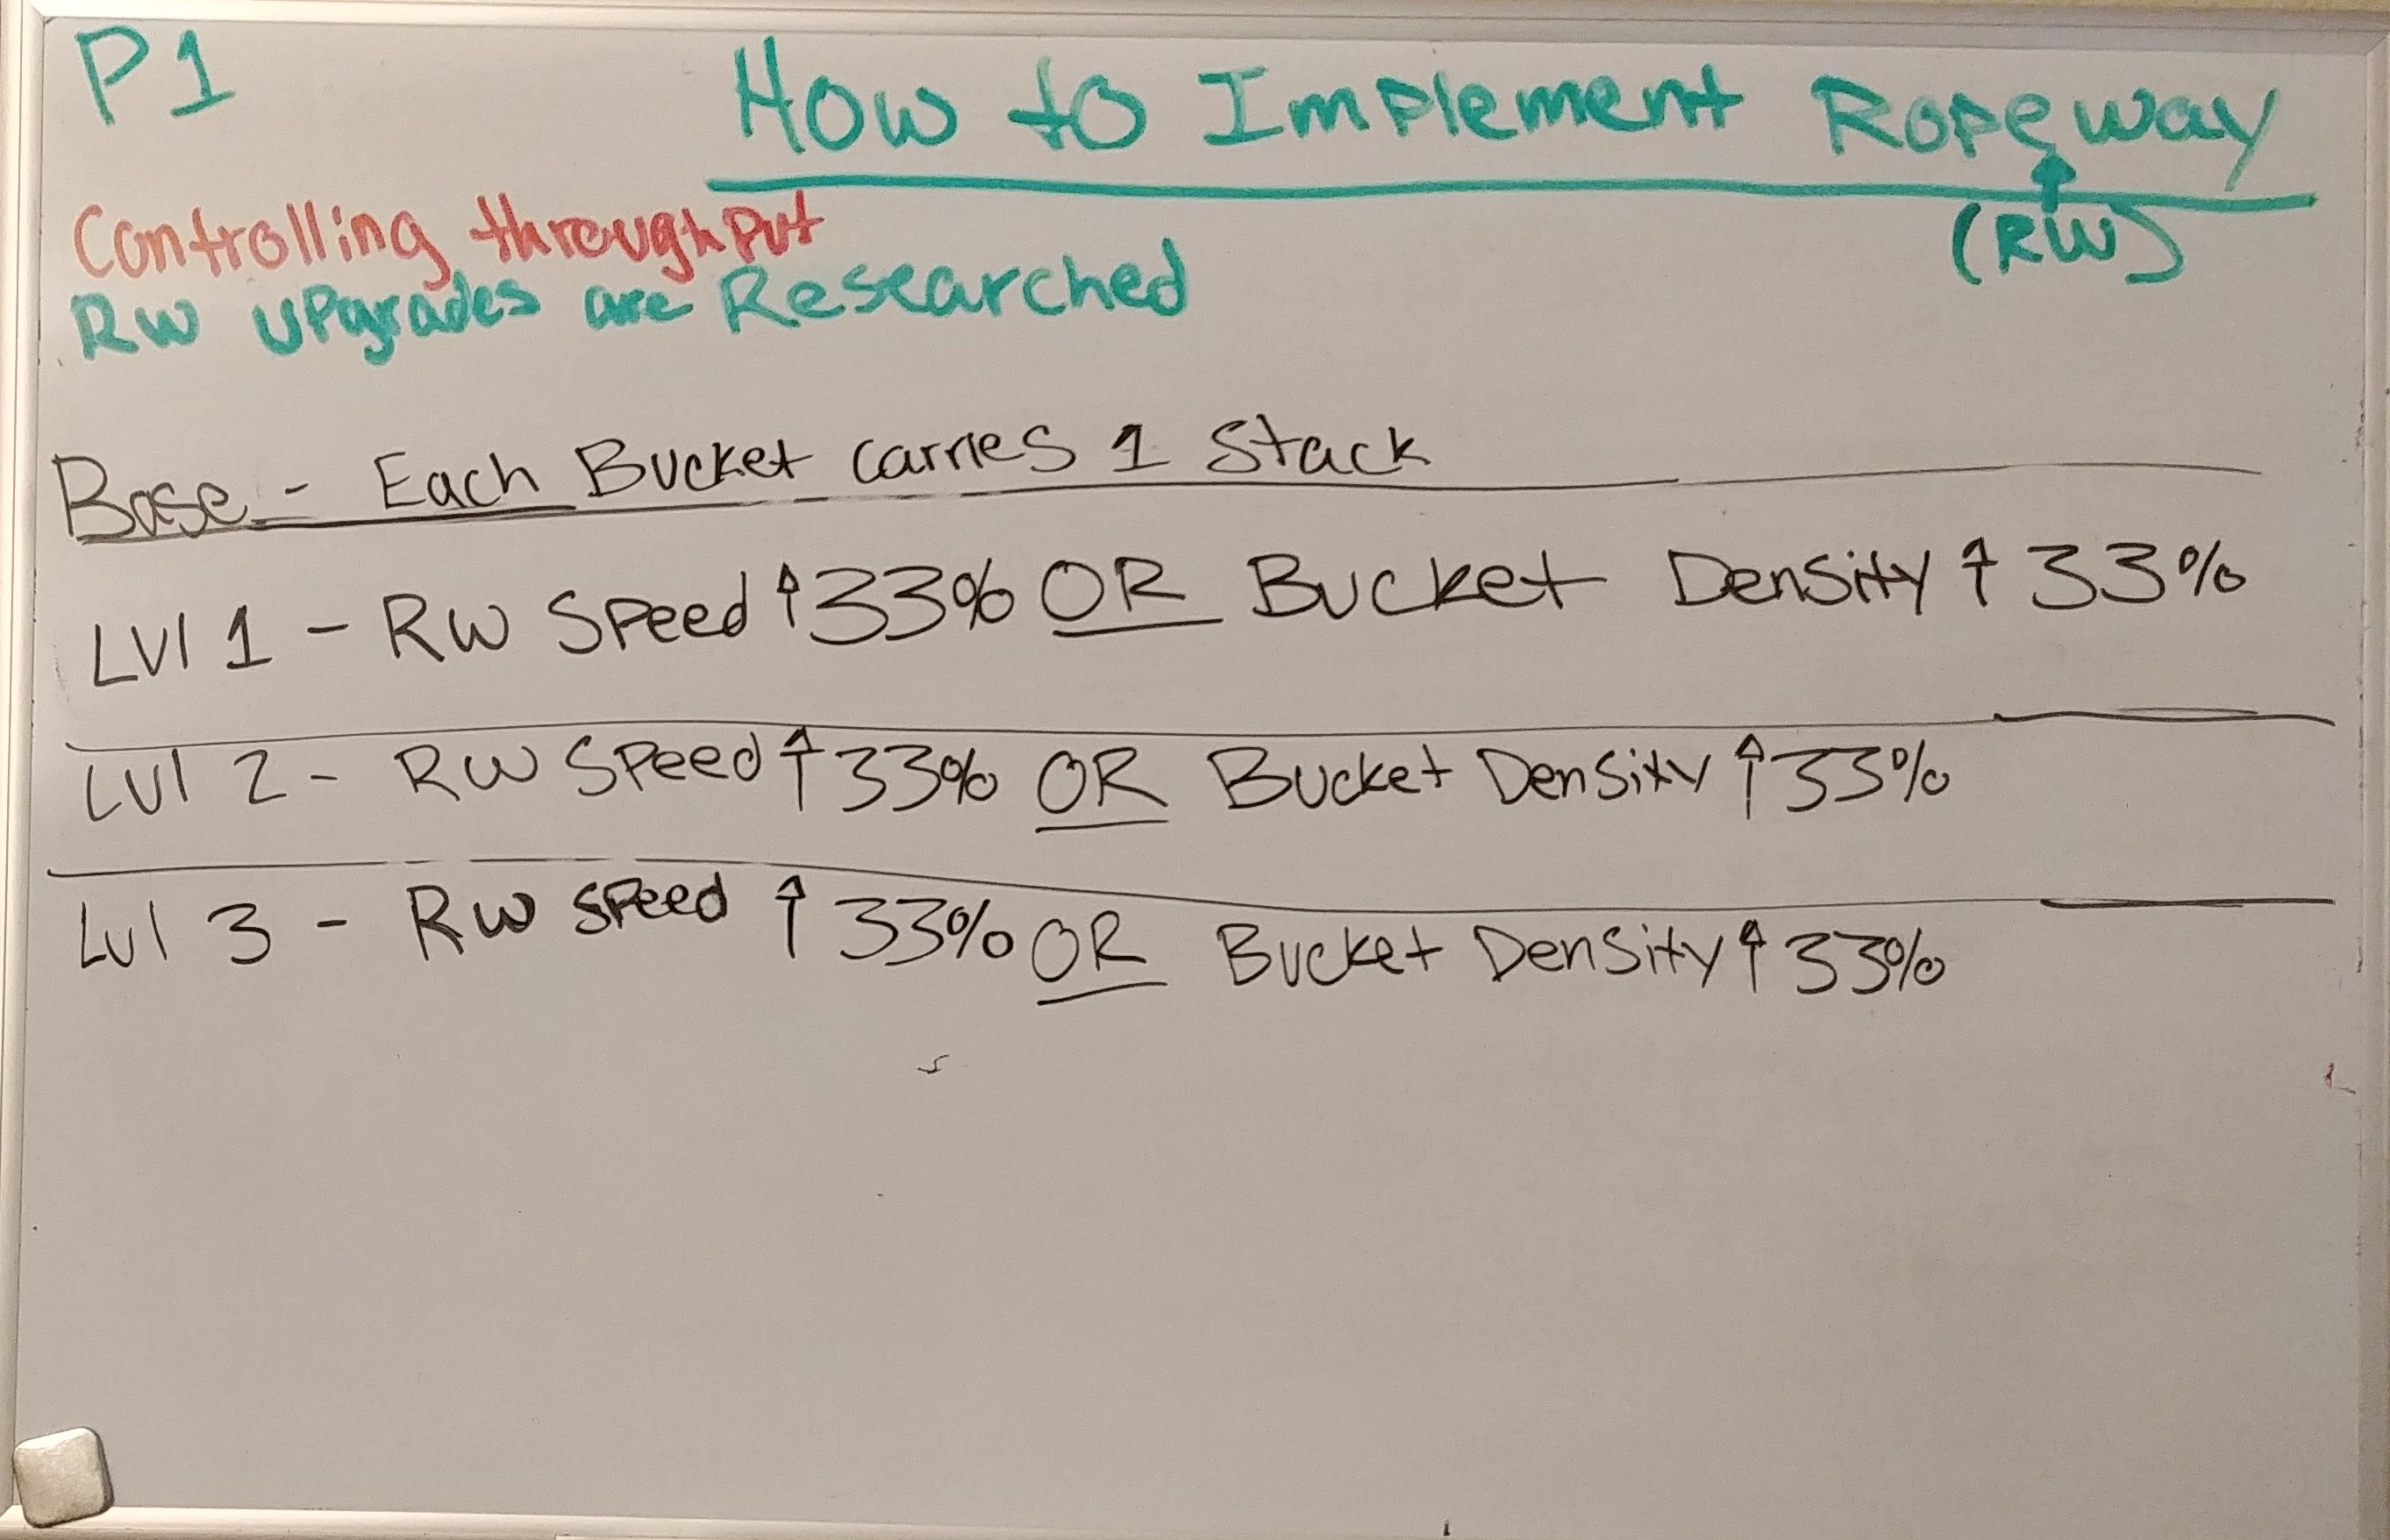 P1
How to Implement Ropeway
(RW)
Controlling throughput
RW upgrades are Researched
Base - Each Bucket carries 1 Stack
Lvl 1 - RW Speed ↑ 33% OR Bucket Density ↑ 33%
Lvl 2 - RW Speed ↑ 33% OR Bucket Density ↑ 33%
Lvl 3 - RW Speed ↑ 33% OR Bucket Density ↑ 33%